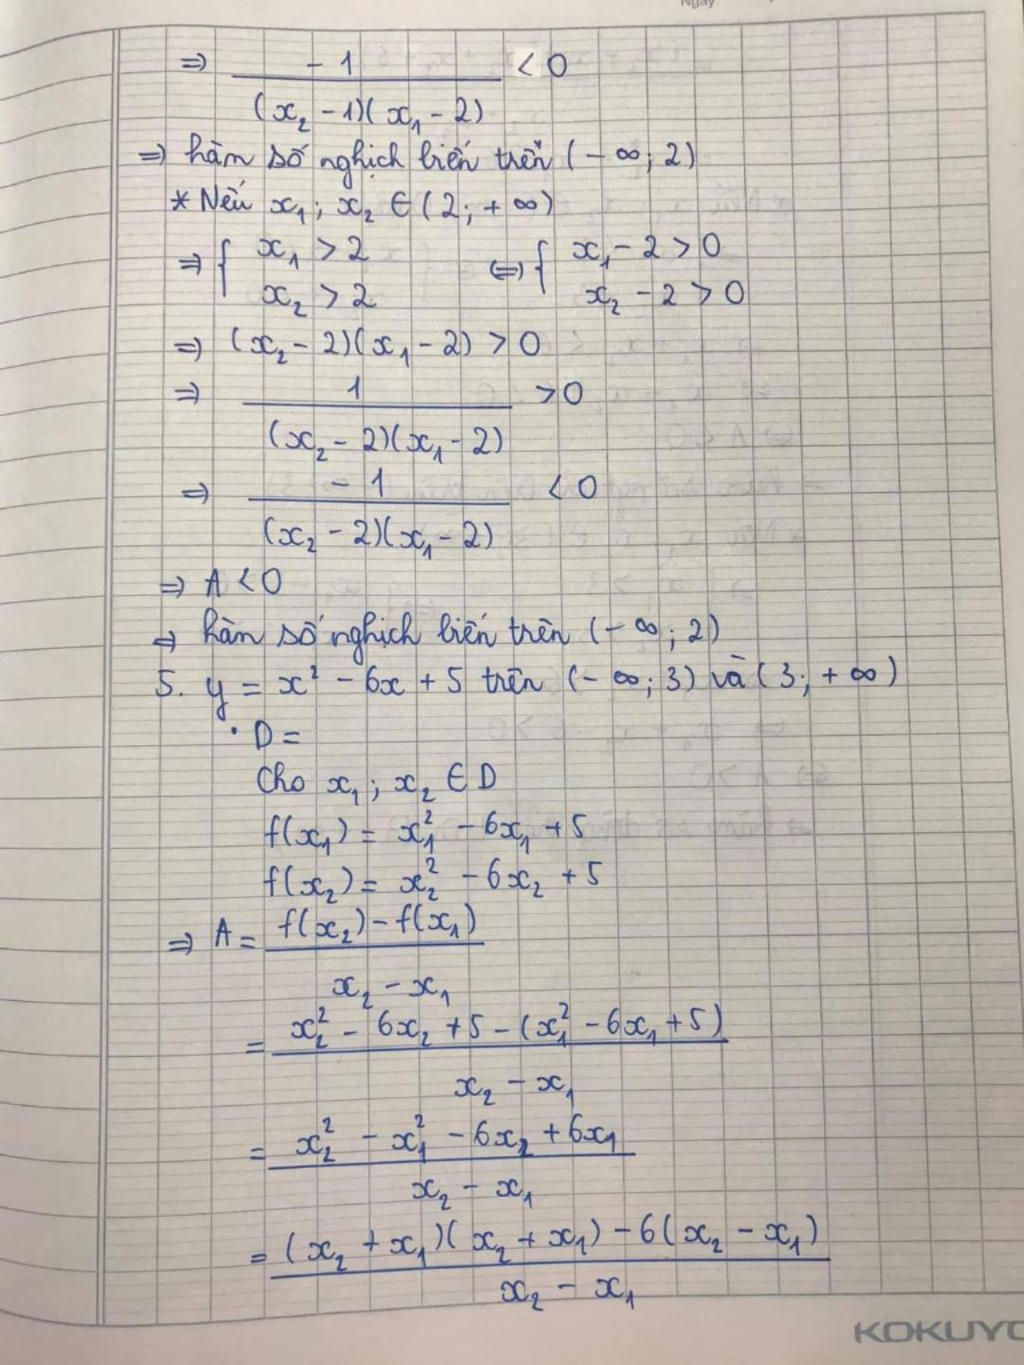 Ngày
⇒ -1 / (x₂ - 1)(x₁ - 2) < 0
⇒ hàm số nghịch biến trên (-∞; 2)
* Nếu x₁; x₂ ∈ (2; +∞)
⇒ { x₁ > 2 ⇔ { x₁ - 2 > 0
x₂ > 2 x₂ - 2 > 0
⇒ (x₂ - 2)(x₁ - 2) > 0
⇒ 1 / (x₂ - 2)(x₁ - 2) > 0
⇒ -1 / (x₂ - 2)(x₁ - 2) < 0
⇒ A < 0
⇒ hàm số nghịch biến trên (-∞; 2)
5. y = x² - 6x + 5 trên (-∞; 3) và (3; +∞)
• D =
Cho x₁; x₂ ∈ D
f(x₁) = x₁² - 6x₁ + 5
f(x₂) = x₂² - 6x₂ + 5
⇒ A = f(x₂) - f(x₁) / x₂ - x₁
= x₂² - 6x₂ + 5 - (x₁² - 6x₁ + 5) / x₂ - x₁
= x₂² - x₁² - 6x₂ + 6x₁ / x₂ - x₁
= (x₂ + x₁)(x₂ + x₁) - 6(x₂ - x₁) / x₂ - x₁
KOKUYO